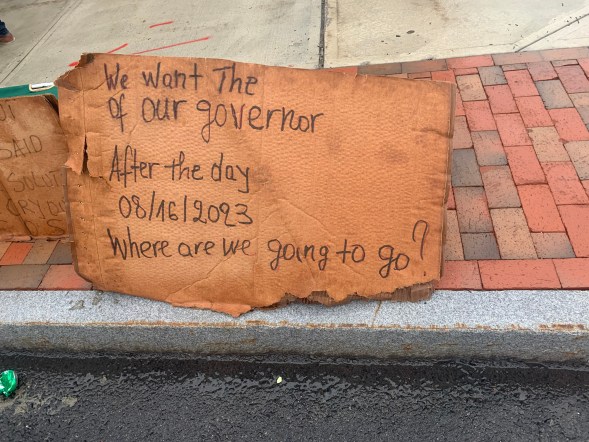 OT
SAID
SOLUT
CRYON
S
We want The
of our governor
After the day
08/16/2023
Where are we going to go?